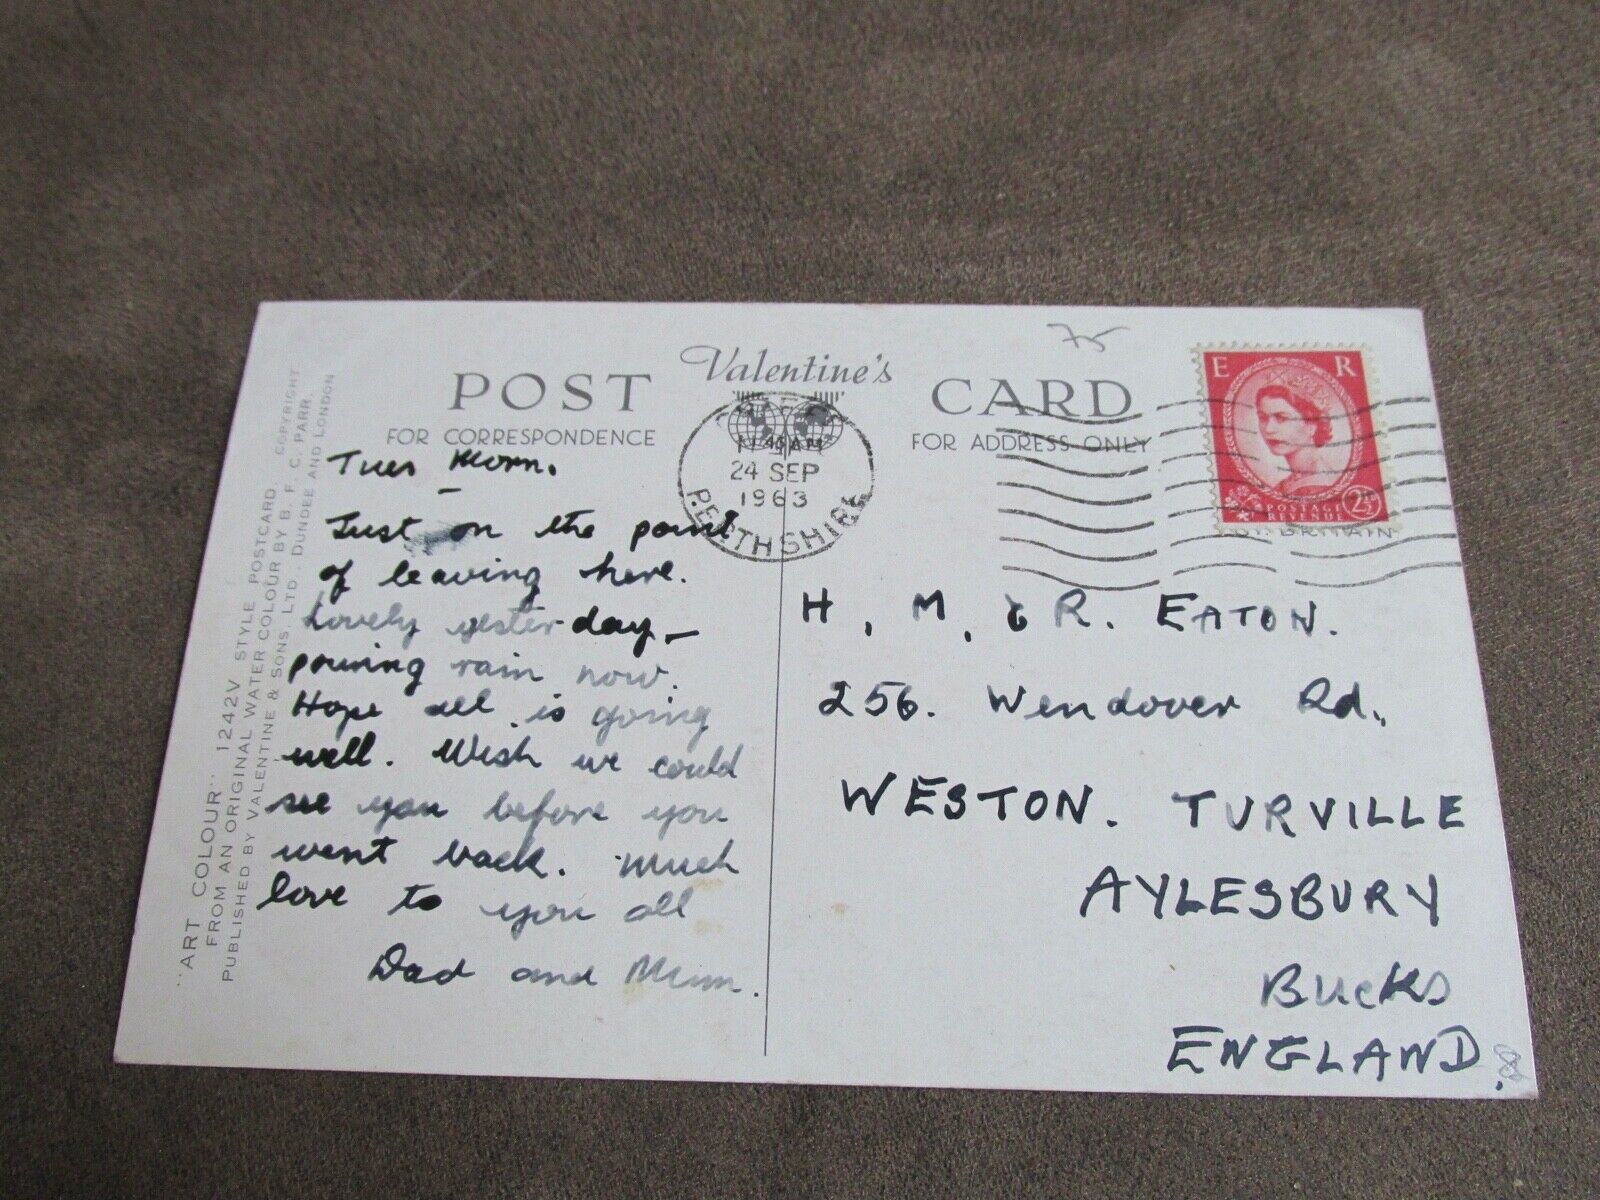 Valentine's
POST CARD
FOR CORRESPONDENCE
FOR ADDRESS ONLY
75
E R
POSTAGE
REVENUE
2½
GT. BRITAIN
24 SEP
1963
PERTHSHIRE
Tues Morn.
Just on the point
of leaving here.
Lovely yesterday –
pouring rain now.
Hope all is going
well. Wish we could
see you before you
went back. Much
love to you all
Dad and Mum.
H, M, & R. EATON.
256. Wendover Rd.,
WESTON. TURVILLE
AYLESBURY
Bucks
ENGLAND.
"ART COLOUR" 1242V STYLE POSTCARD.
FROM AN ORIGINAL WATER COLOUR BY B. F. C. PARR. COPYRIGHT
PUBLISHED BY VALENTINE & SONS, LTD., DUNDEE AND LONDON